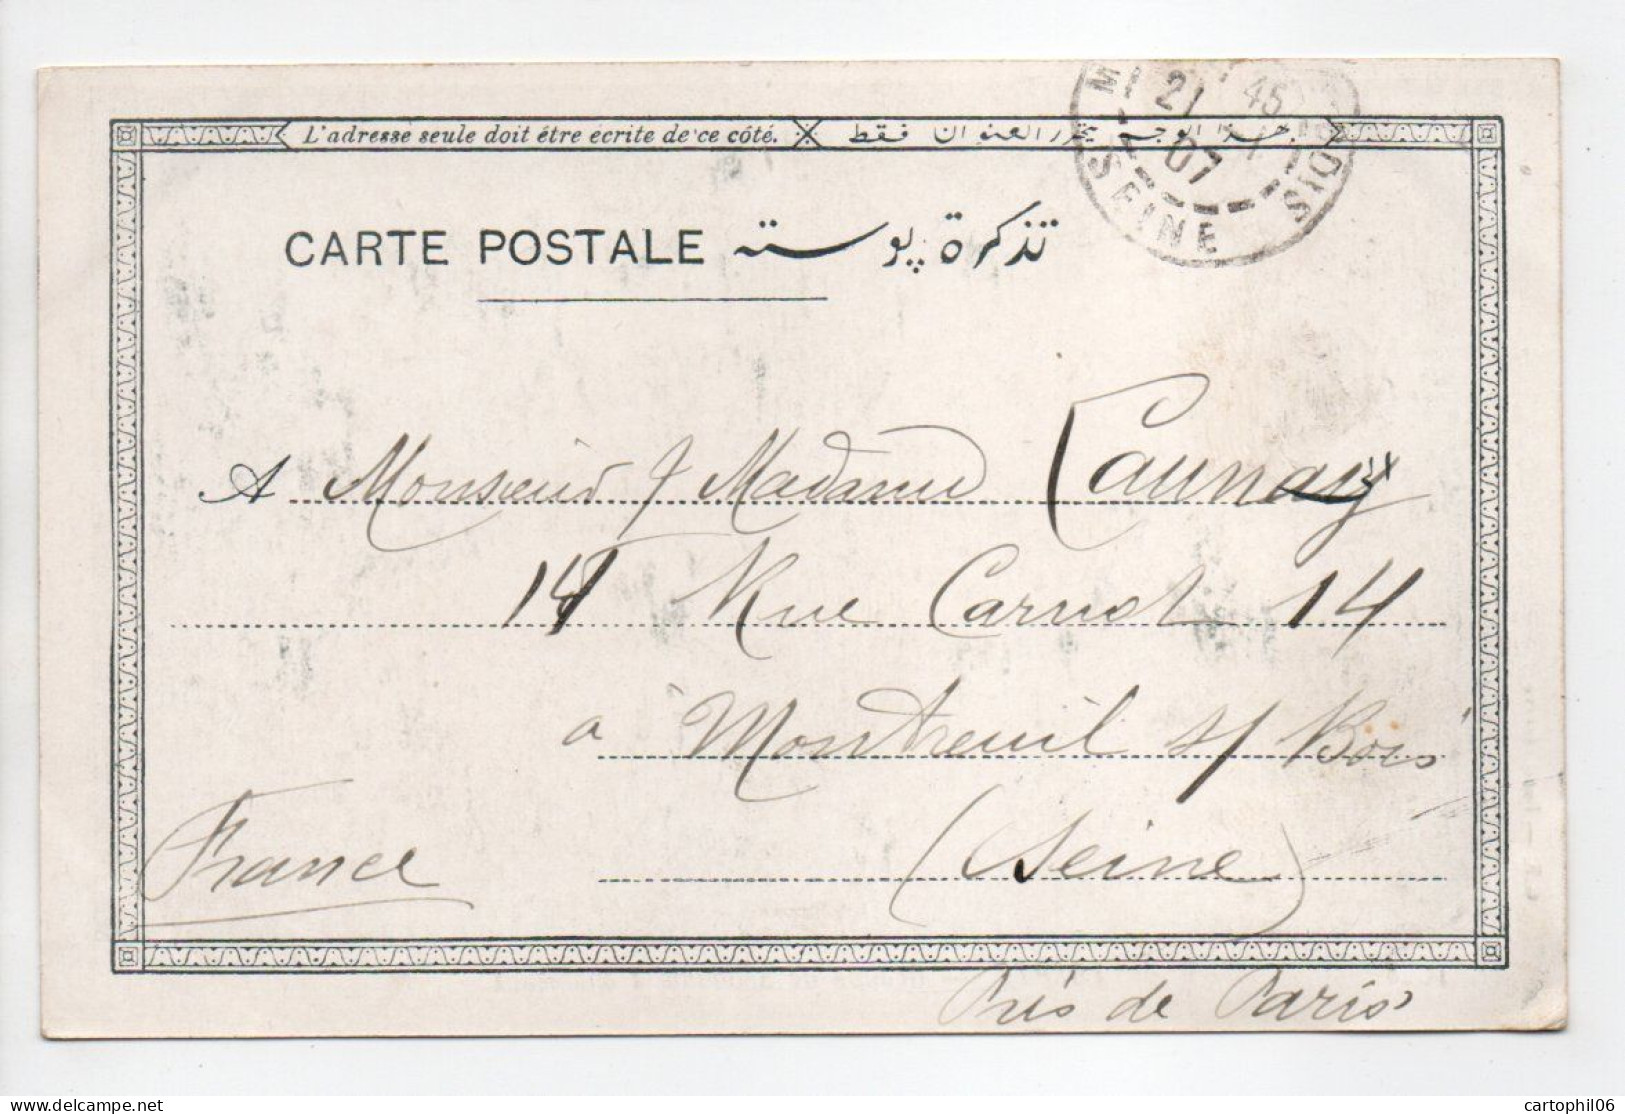 L'adresse seule doit être écrite de ce côté. ✕ يحرر العنوان فقط بجهة الوجه
M 21 45 SIOU
07
SEINE
CARTE POSTALE تذكرة پوسته
A Monsieur & Madame Launay
14 Rue Carnot 14
à Montreuil s/ Bois
(Seine)
France
Près de Paris
cartophil06